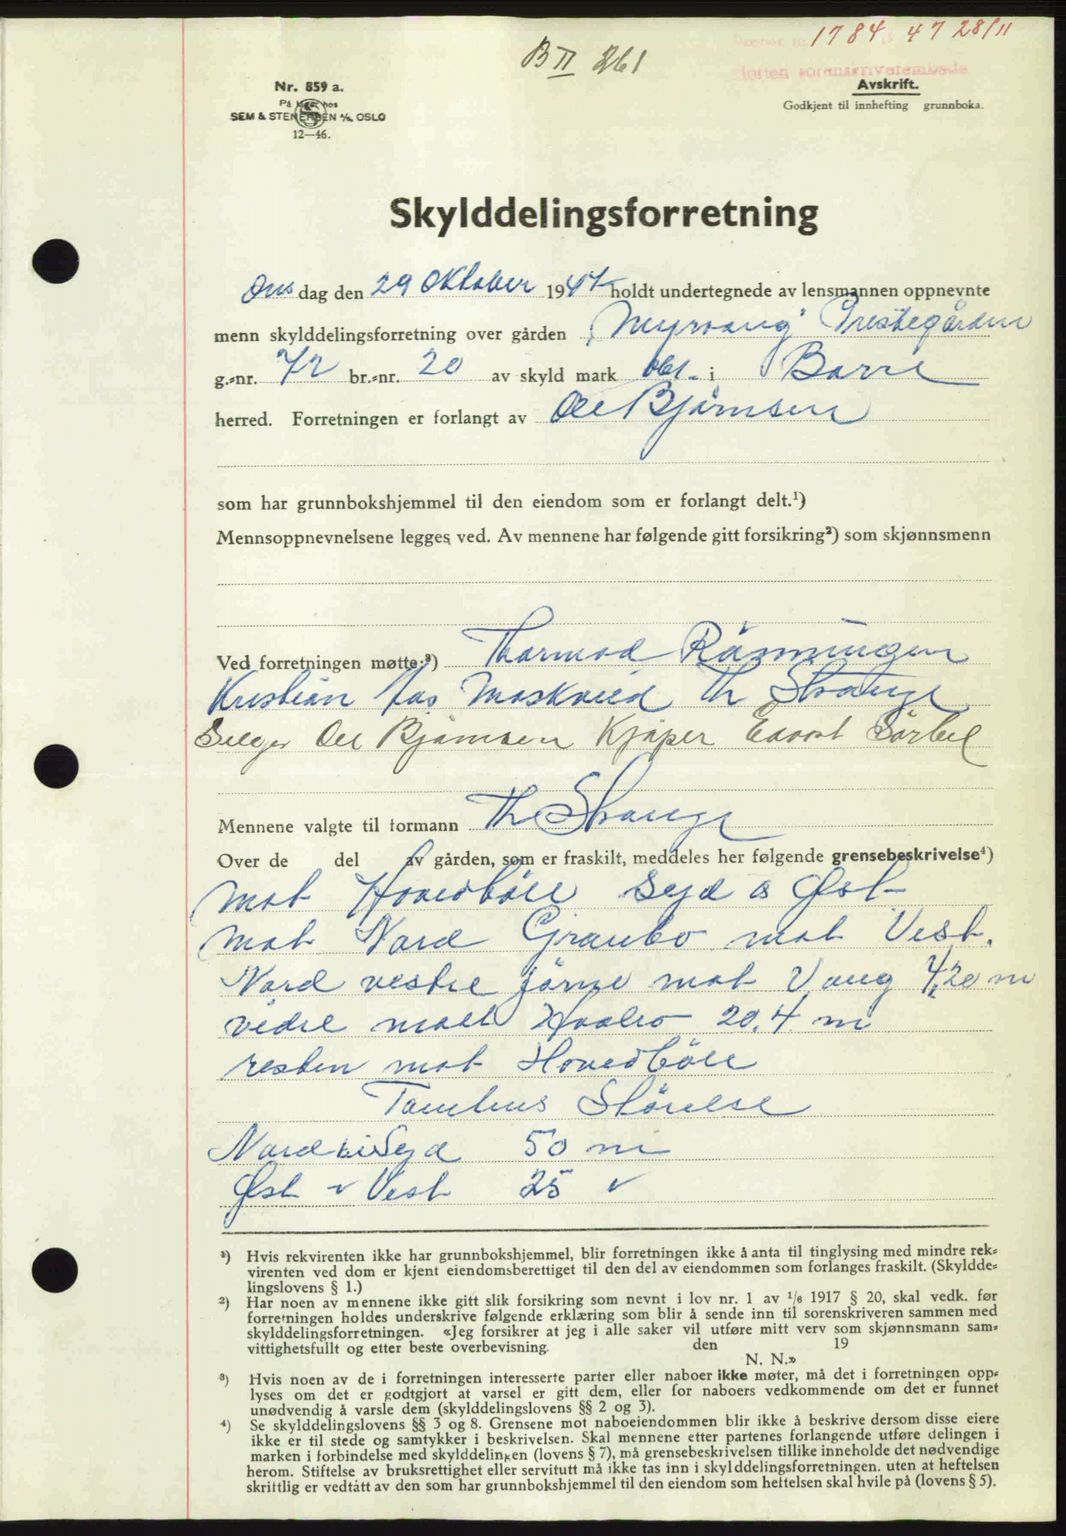 1784 47 28/11
B II 261
Horten sorenskriverembede
Nr. 859 a.
På lager hos
SEM & STENERSEN A/S, OSLO
12—46.
Avskrift.
Godkjent til innhefting grunnboka.
Skylddelingsforretning
Ons dag den 29 Oktober 1947 holdt undertegnede av lensmannen oppnevnte
menn skylddelingsforretning over gården "Myrvang" Prestegården
g.-nr. 72 br.-nr. 20 av skyld mark i Borre
herred. Forretningen er forlangt av Ole Bjørnsen
som har grunnbokshjemmel til den eiendom som er forlangt delt.¹)
Mennsoppnevnelsene legges ved. Av mennene har følgende gitt forsikring²) som skjønnsmenn
Ved forretningen møtte:³) Thormod Rønningen
Kristian Aas Th Strange
Selger Ole Bjørnsen Kjøper Edvart Sørbel
Mennene valgte til formann Th Strange
Over de del av gården, som er fraskilt, meddeles her følgende grensebeskrivelse⁴)
mot Hovedbøle Syd & Øst
mot Nord Granbo mot Vest.
Nord vestre jørne mot Vang 4,20 m
vidre mott 20,4 m
resten mot Hovedbøle
Tomtens Størelse
Nord Syd 50 m
Øst Vest 25
¹) Hvis rekvirenten ikke har grunnbokshjemmel, blir forretningen ikke å anta til tinglysing med mindre rek-
virenten ved dom er kjent eiendomsberettiget til den del av eiendommen som forlanges fraskilt. (Skyldde-
lingslovens § 1.)
²) Har noen av mennene ikke gitt slik forsikring som nevnt i lov nr. 1 av 1/6 1917 § 20, skal vedk. før
forretningen holdes underskrive følgende erklæring som blir å sende inn til sorenskriveren sammen med
skylddelingsforretningen. «Jeg forsikrer at jeg i alle saker vil utføre mitt verv som skjønnsmann sam-
vittighetsfullt og etter beste overbevisning. den 19
N. N.»
³) Hvis noen av de i forretningen interesserte parter eller naboer ikke møter, må det i forretningen opp-
lyses om det er godtgjort at varsel er gitt dem, eller for naboers vedkommende om det er funnet
unødvendig å varsle dem (skylddelingslovens §§ 2 og 3).
⁴) Se skylddelingslovens §§ 3 og 8. Grensene mot naboeiendommen blir ikke å beskrive dersom disse eiere
ikke er til stede og samtykker i beskrivelsen. Skal mennene etter partenes forlangende utføre delingen i
marken i forbindelse med skylddelingen (lovens § 7), må grensebeskrivelsen tillike inneholde det nødvendige
herom. Stiftelse av bruksrettighet eller servitutt må ikke tas inn i skylddelingsforretningen, uten at heftelsen
skriftlig er vedtatt av den som har grunnbokshjemmel til den eiendom som heftelsen skal hvile på (lovens § 5).